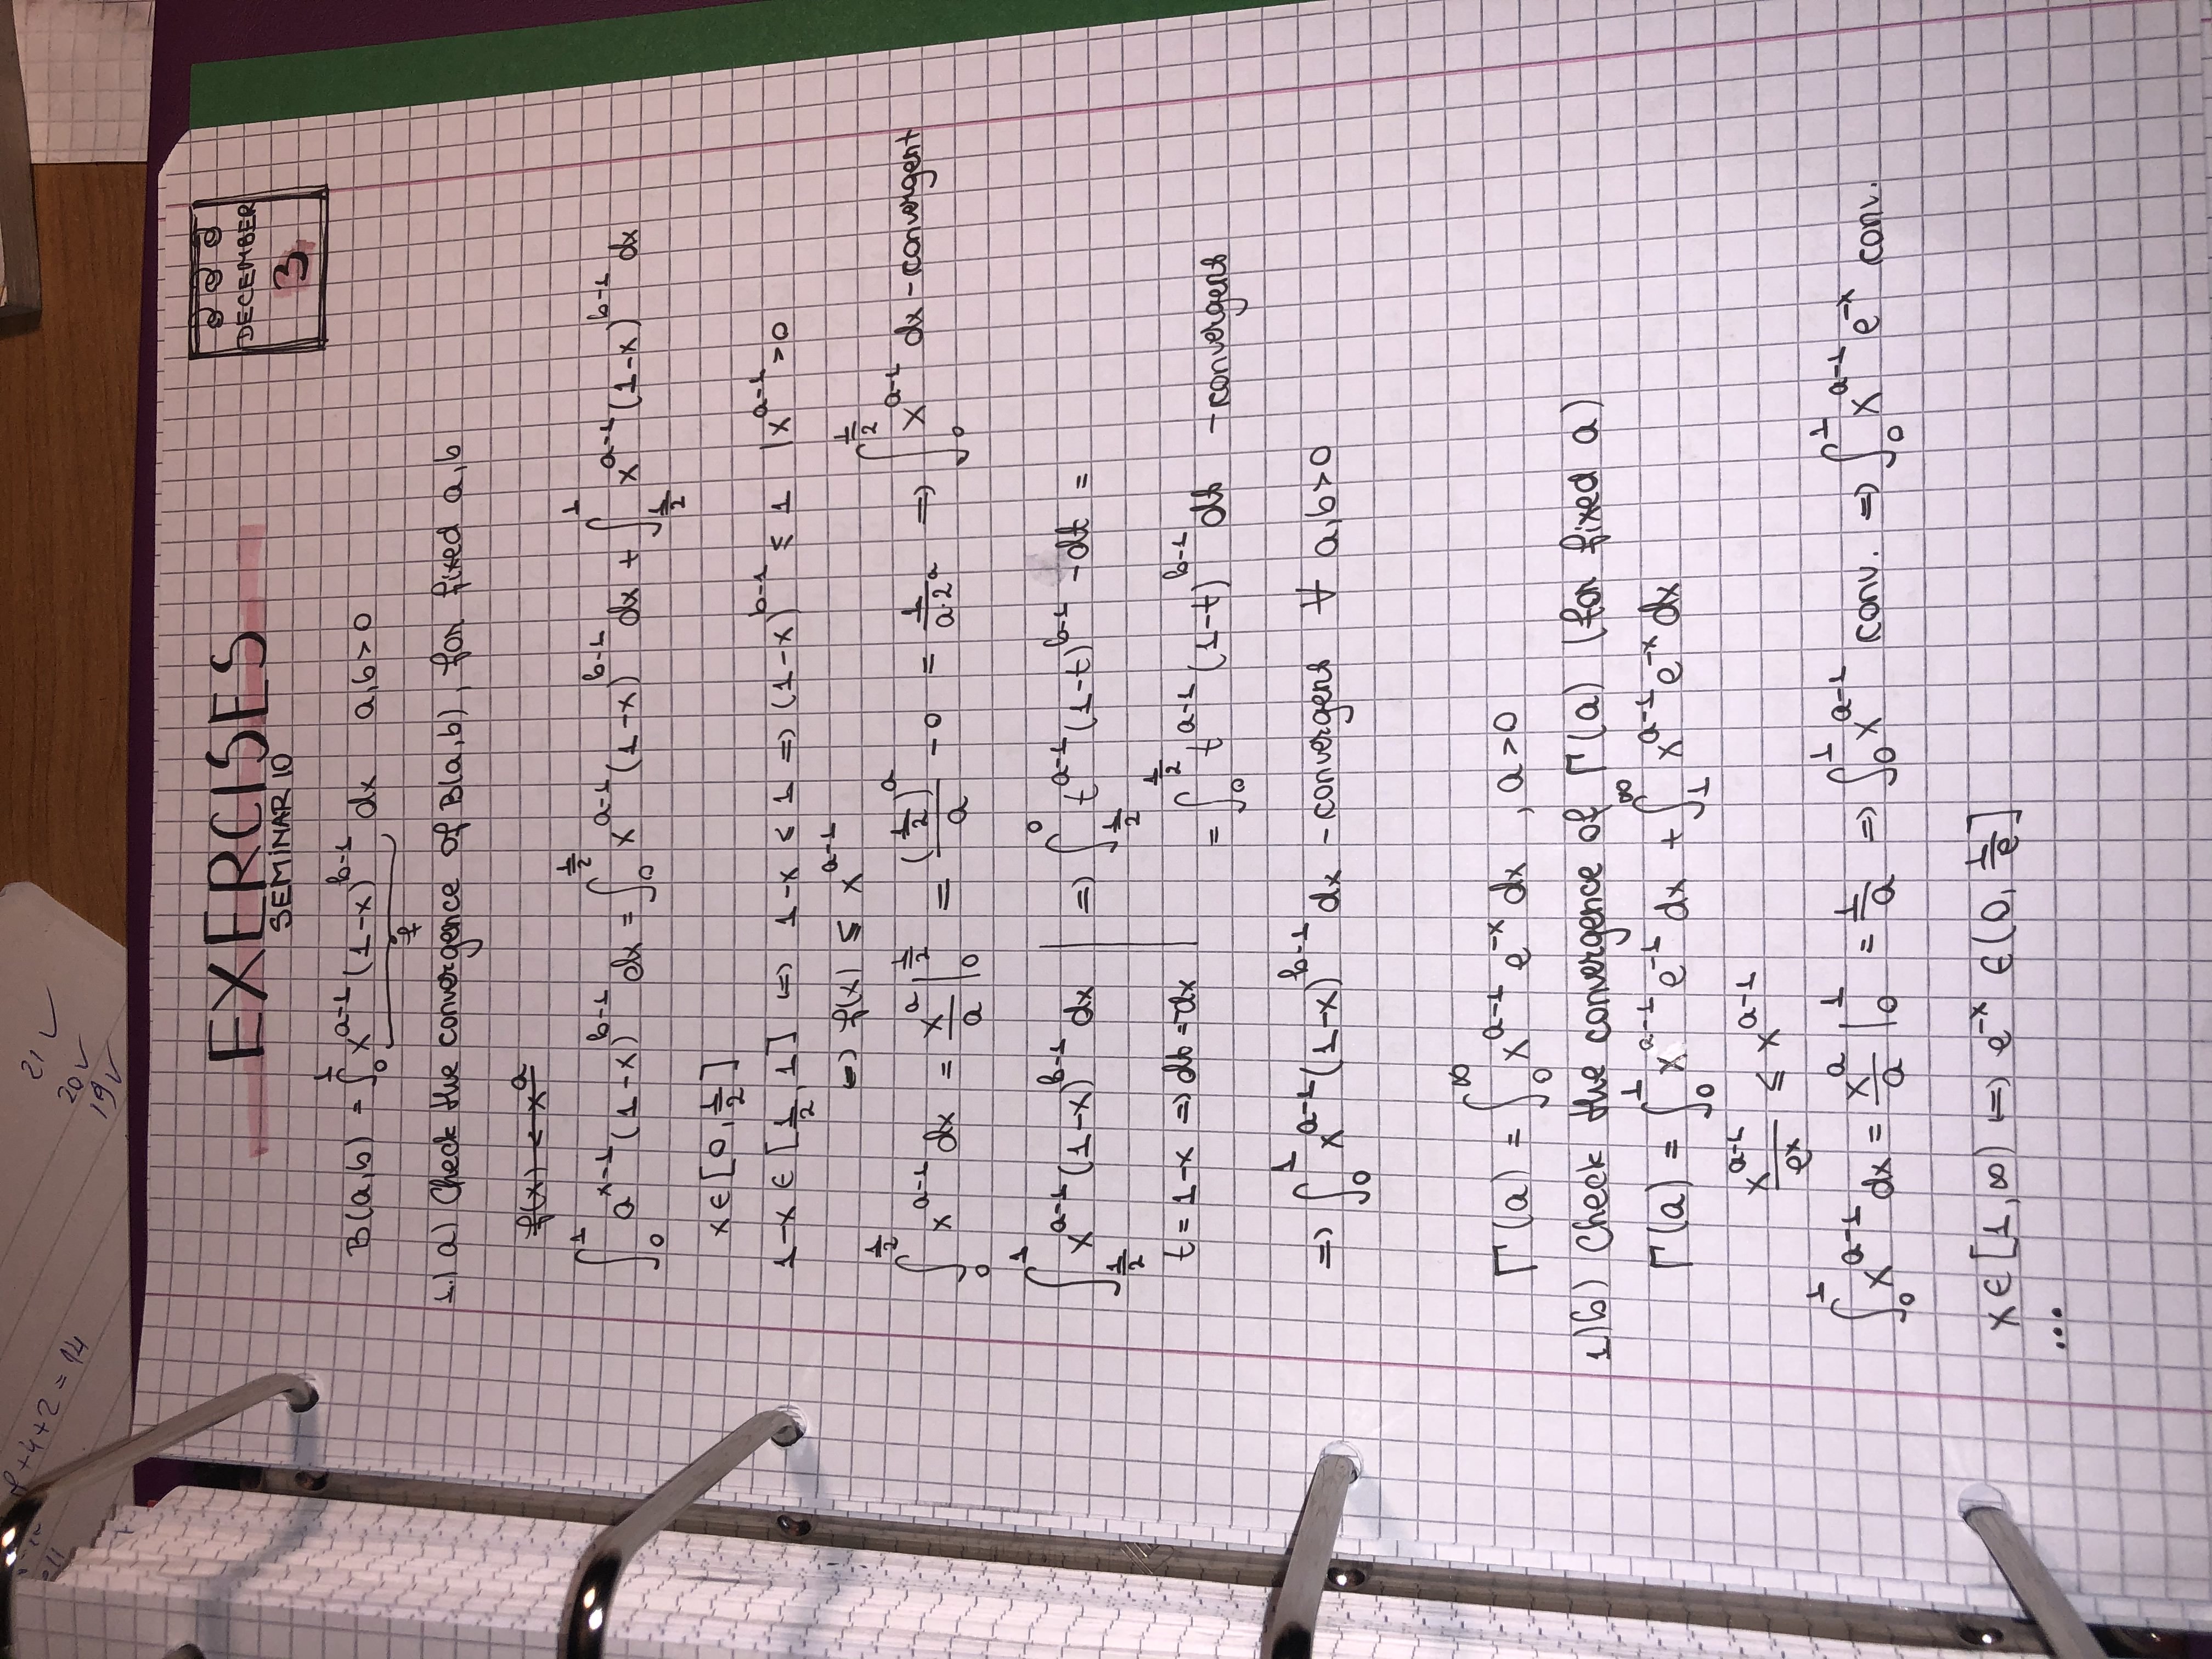 7+4+2=14
21 ✓
20 ✓
19 ✓
EXERCISES
SEMINAR 10
DECEMBER
3
B(a,b) = ∫₀¹ x^(a-1) (1-x)^(b-1) dx   a,b>0
f
1.) a) Check the convergence of B(a,b), for fixed a,b
f(x) < x^a
∫₀¹ a^(x-1) (1-x)^(b-1) dx = ∫₀^(1/2) x^(a-1) (1-x)^(b-1) dx + ∫_(1/2)^1 x^(a-1) (1-x)^(b-1) dx
x ∈ [0, 1/2]
1-x ∈ [1/2, 1] ⇔ 1-x ≤ 1 ⇒ (1-x)^(b-1) ≤ 1 | x^(a-1) > 0
⇒ f(x) ≤ x^(a-1)
∫₀^(1/2) x^(a-1) dx = x^a/a |₀^(1/2) = (1/2)^a/a - 0 = 1/(a·2^a) ⇒ ∫₀^(1/2) x^(a-1) dx - convergent
∫_(1/2)^1 x^(a-1) (1-x)^(b-1) dx | ⇒ ∫_(1/2)^0 t^(a-1) (1-t)^(b-1) -dt =
t = 1-x ⇒ dt = -dx | = ∫₀^(1/2) t^(a-1) (1-t)^(b-1) dt - convergent
⇒ ∫₀¹ x^(a-1) (1-x)^(b-1) dx - convergent ∀ a,b>0
Γ(a) = ∫₀^∞ x^(a-1) e^(-x) dx , a>0
1)b) Check the convergence of Γ(a) (for fixed a)
Γ(a) = ∫₀¹ x^(a-1) e^(-1) dx + ∫₁^∞ x^(a-1) e^(-x) dx
x^(a-1)/e^x ≤ x^(a-1)
∫₀¹ x^(a-1) dx = x^a/a |₀¹ = 1/a ⇒ ∫₀¹ x^(a-1) conv. ⇒ ∫₀¹ x^(a-1) e^(-x) conv.
x ∈ [1, ∞) ⇔ e^(-x) ∈ (0, 1/e]
...